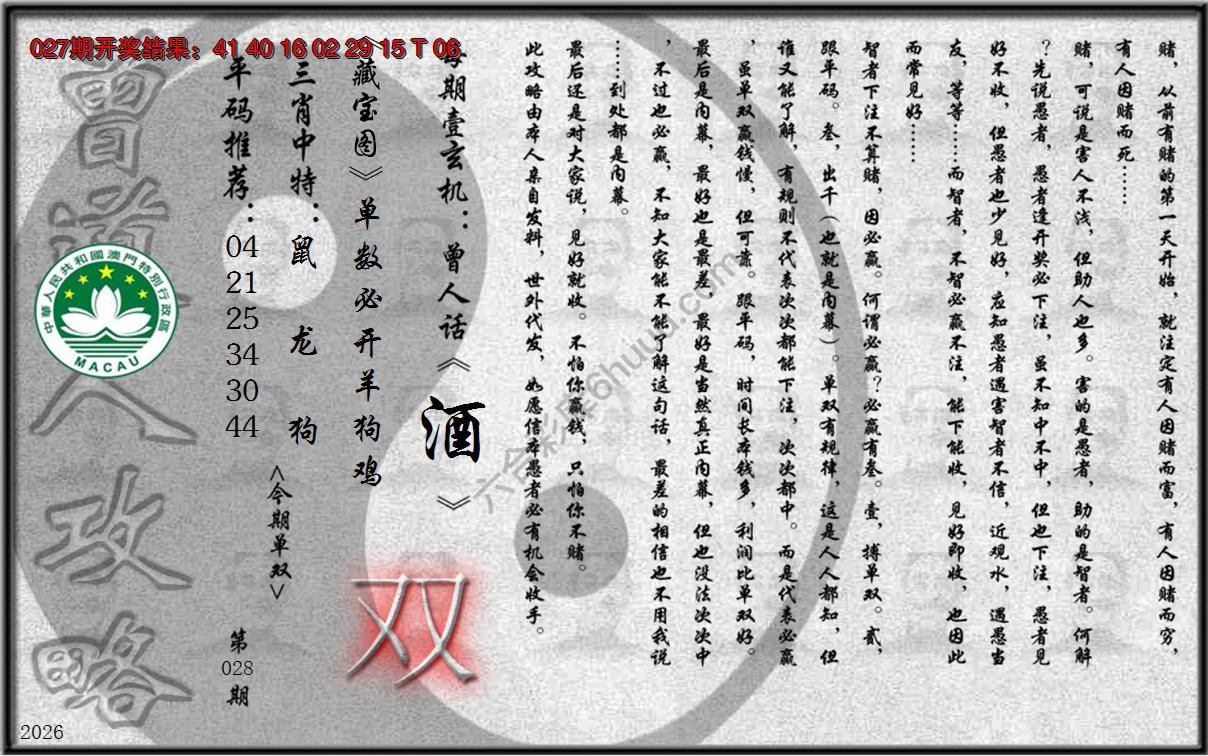 027期开奖结果：41 40 16 02 29 15 T 06
赌，从前有赌的第一天开始，就注定有人因赌而富，有人因赌而穷，
有人因赌而死……
赌，可说是害人不浅，但助人也多。害的是愚者，助的是智者。何解
？先说愚者，愚者逢开奖必下注，虽不知中不中，但也下注，愚者见
好不收，但愚者也少见好，应知愚者遇害智者不信，近观水，遇愚当
友，等等……而智者，不智必赢不注，能下能收，见好即收，也因此
而常见好……
智者下注不算赌，因必赢。何谓必赢？必赢有叁。壹，搏单双。贰，
跟平码。叁，出千（也就是内幕）。单双有规律，这是人人都知，但
谁又能了解，有规则不代表次次都能下注，次次都中。而是代表必赢
，虽单双赢钱慢，但可靠。跟平码，时间长本钱多，利润比单双好。
最后是内幕，最好也是最差，最好是当然真正内幕，但也没法次次中
，不过也必赢，不知大家能不能了解这句话，最差的相信也不用我说
……到处都是内幕。
最后还是对大家说，见好就收。不怕你赢钱，只怕你不赌。
此攻略由本人亲自发料，世外代发，如愿信本愚者必有机会收手。
每期壹玄机：曾人话《酒》
《藏宝图》单数必开羊狗鸡
双
三肖中特：鼠 龙 狗
平码推荐：04 21 25 34 30 44
<今期单双>
第028期
曾道人攻略
中華人民共和國澳門特別行政區
MACAU
六合彩库6huuu.com
2026